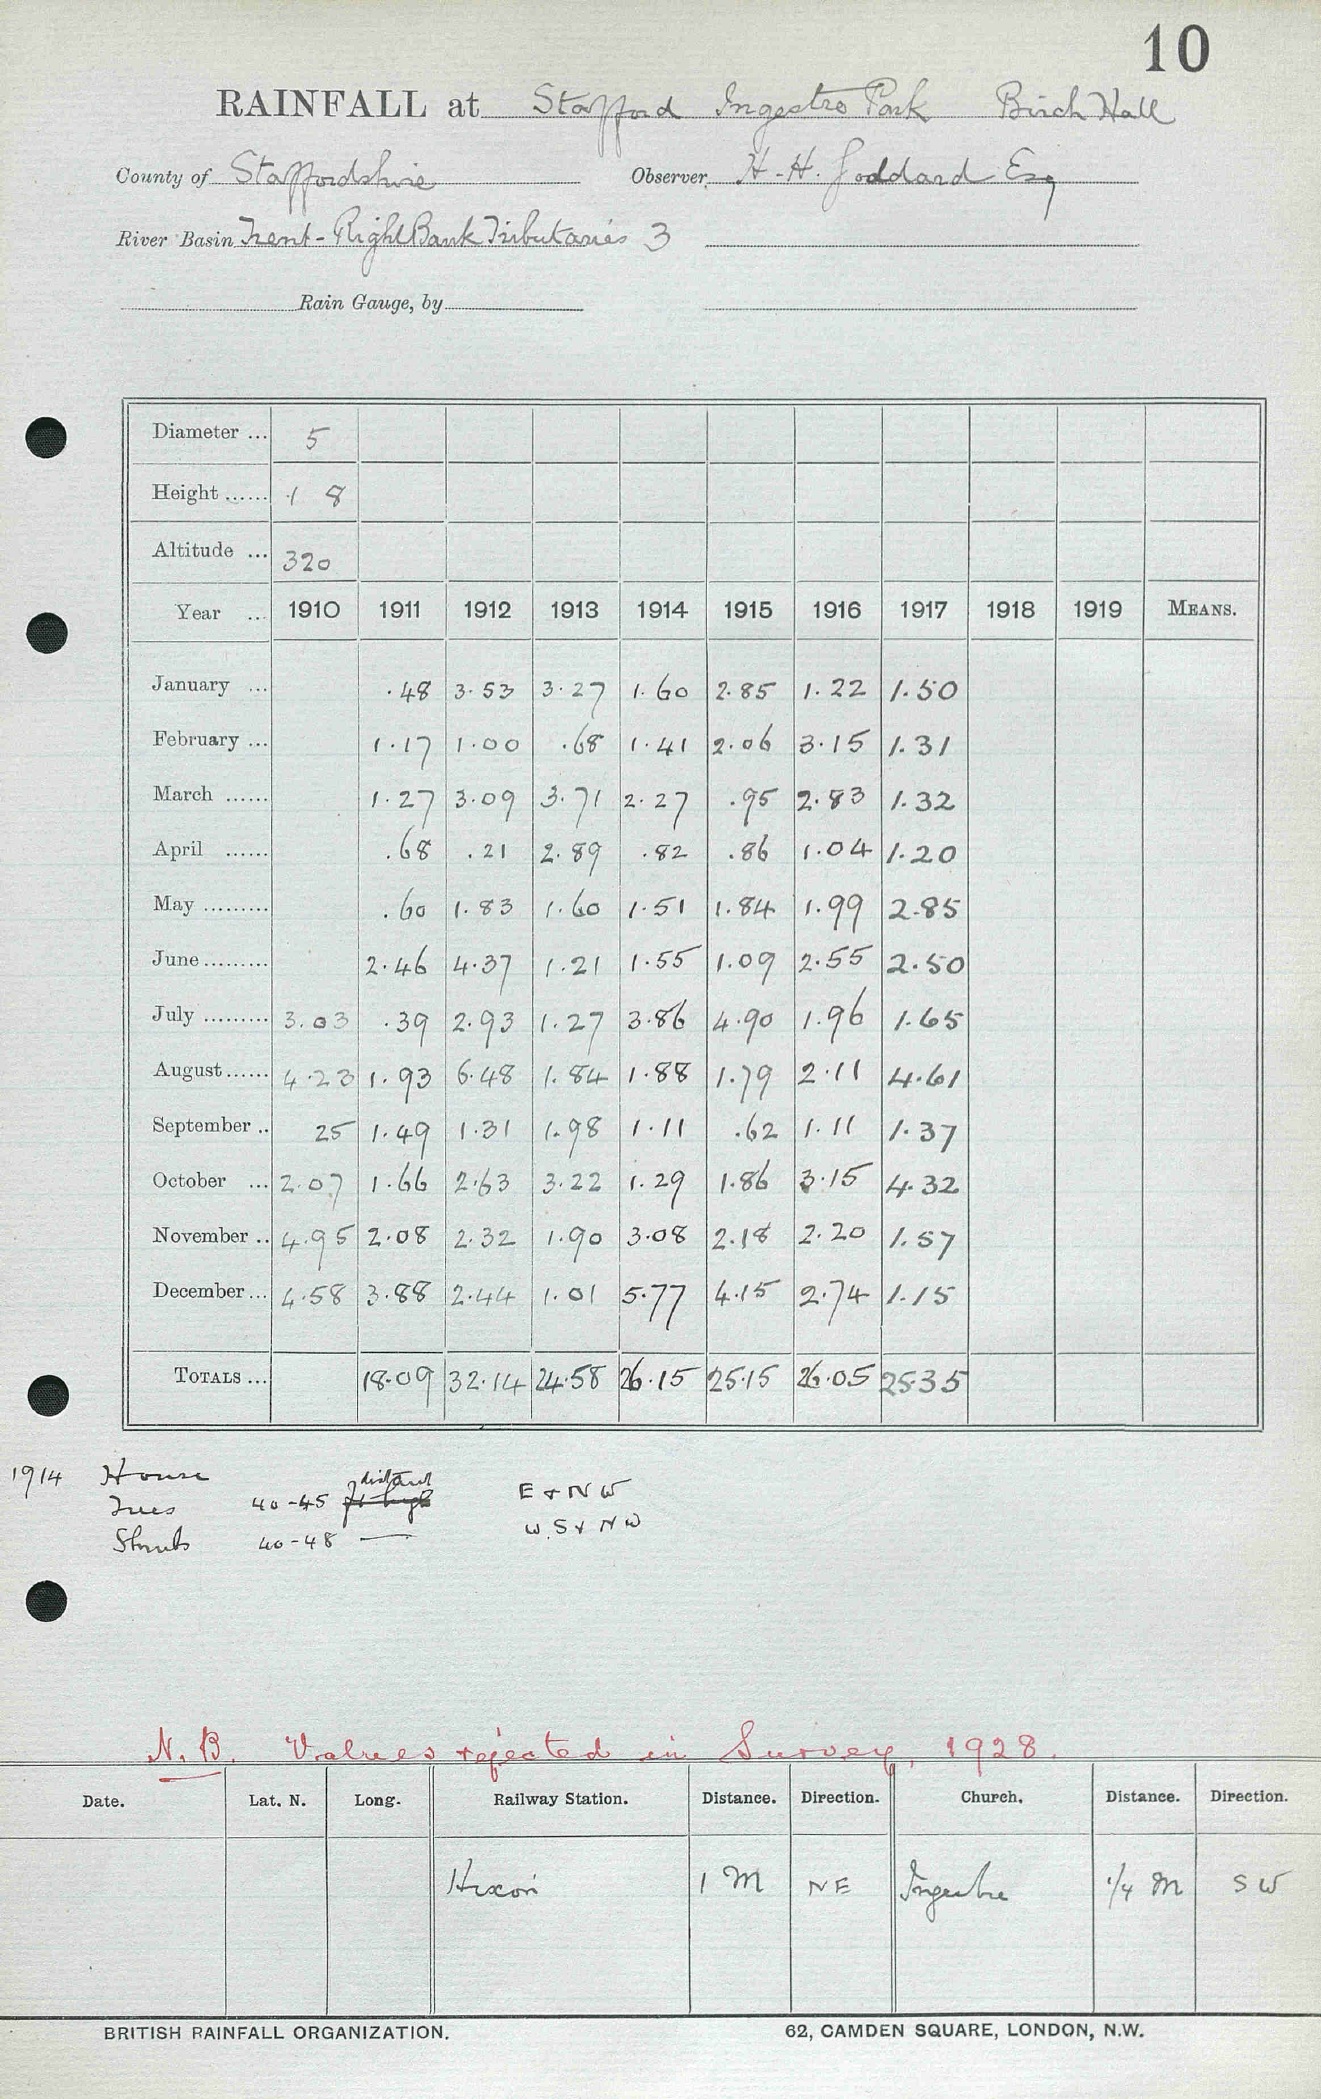 10
RAINFALL at Stafford Ingestre Park Birch Hall
County of Staffordshire Observer, H-H. Goddard Esq
River Basin Trent - Right Bank Tributaries 3
Rain Gauge, by
Diameter ... 5
Height ...... 1 8
Altitude ... 320
Year ... 1910 1911 1912 1913 1914 1915 1916 1917 1918 1919 MEANS.
January ... .48 3.53 3.27 1.60 2.85 1.22 1.50
February ... 1.17 1.00 .68 1.41 2.06 3.15 1.31
March ...... 1.27 3.09 3.71 2.27 .95 2.83 1.32
April ...... .68 .21 2.89 .82 .86 1.04 1.20
May ......... .60 1.83 1.60 1.51 1.84 1.99 2.85
June ......... 2.46 4.37 1.21 1.55 1.09 2.55 2.50
July ......... 3.03 .39 2.93 1.27 3.86 4.90 1.96 1.65
August ...... 4.23 1.93 6.48 1.84 1.88 1.79 2.11 4.61
September .. 25 1.49 1.31 1.98 1.11 .62 1.11 1.37
October ... 2.07 1.66 2.63 3.22 1.29 1.86 3.15 4.32
November .. 4.95 2.08 2.32 1.90 3.08 2.18 2.20 1.57
December ... 4.58 3.88 2.44 1.01 5.77 4.15 2.74 1.15
TOTALS ... 18.09 32.14 24.58 26.15 25.15 26.05 25.35
1914 House
distant
Trees 40-45 ft high E + N W
Shrubs 40-48 — W. S + N W
N.B. Values rejected in Survey, 1928.
Date. Lat. N. Long. Railway Station. Distance. Direction. Church. Distance. Direction.
Hixon 1 M NE Ingestre 1/4 M SW
BRITISH RAINFALL ORGANIZATION. 62, CAMDEN SQUARE, LONDON, N.W.